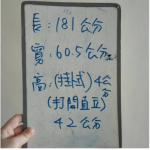 長:181公分
寬:60.5公分
高:(掛式)4公分
(打開直立)
42公分